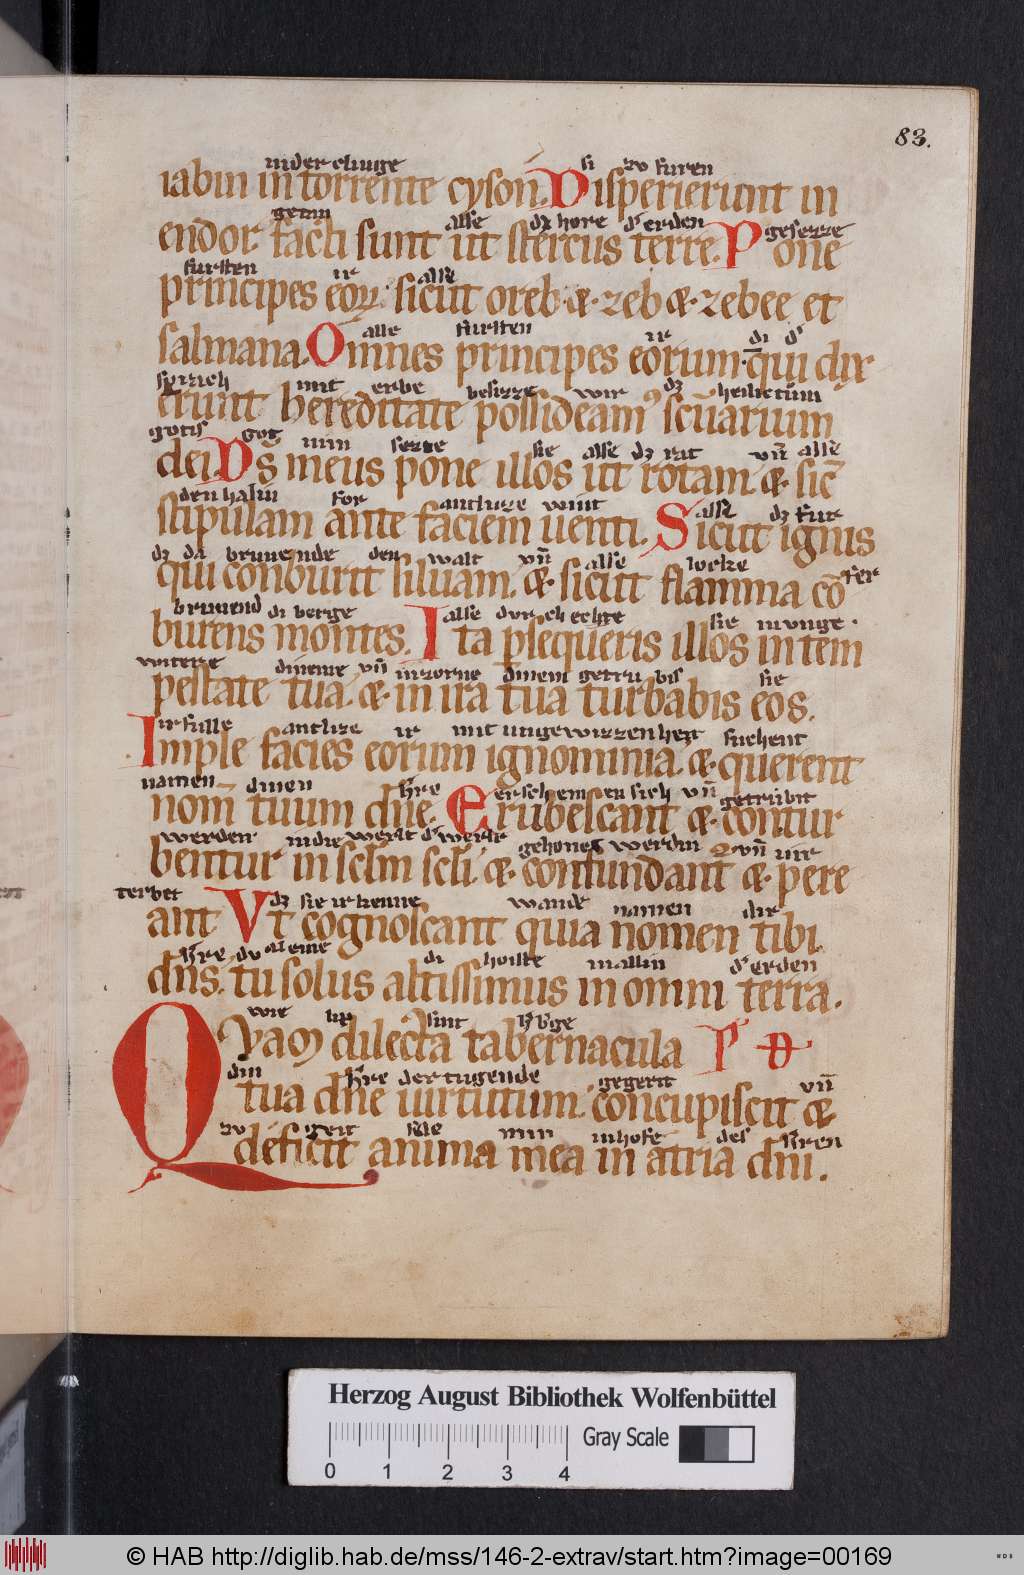 83.
in der clinge si zv furen
iabin in torrente cyson. Disperierunt in
getan alse dz hore d'erden gesezze
endor facti sunt ut stercus terre. Pone
fursten ir alse
principes eoꝝ sicut oreb ⁊ zeb ⁊ zebee et
alle fursten ir di d'
salmana. Omnes principes eorum qui dix
mit erbe besizze wir dz heilictům
erunt hereditate possideamꝰ scūarium
gotis got min sezze sie alse dz rat vn̄ alse
dei. Ds̄ meus pone illos ut rotam ⁊ sic̄
den halm for antluze wint alse dz fur
stipulam ante faciem uenti. Sicut ignis
dz da brunende den walt vn̄ alse locke
qui conburit siluam. ⁊ sicut flamma cō
brunend di berge alse durch echte sie in vnge
burens montes. Ita ꝑsequeris illos in tem
witere dineme vn̄ in zorne dinem getru bis sie
pestate tua. ⁊ in ira tua turbabis eos.
irfulle antlize ir mit ungewizzenheit suchent
Imple facies eorum ignominia. ⁊ querent
namen dinen h're erschemen sich vn̄ getrubit
nom̄ tuum dn̄e. Erubescant ⁊ contur
werden in die werlt d' werlt gehonet werdin vn̄ vir
bentur in sclm scli. ⁊ confundant ⁊ pere
terbit dz sie irkenne wande namen dir
ant Vt cognoscant quia nomen tibi
h're du aleine di hoiste in allin d'erden
dn̄s. tu solus altissimus in omni terra.
wie lip sint
Qvaꝫ dilecta tabernacula P
din h're der tugende gegerit vn̄
tua dn̄e uirtutum. concupiscit ⁊
zv geit sele min in hofe des h'ren
deficit anima mea in atria dn̄i.
Herzog August Bibliothek Wolfenbüttel
Gray Scale
0 1 2 3 4
© HAB http://diglib.hab.de/mss/146-2-extrav/start.htm?image=00169